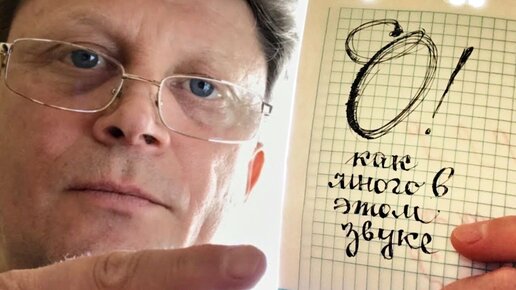 О!
как
много в
этом
звуке